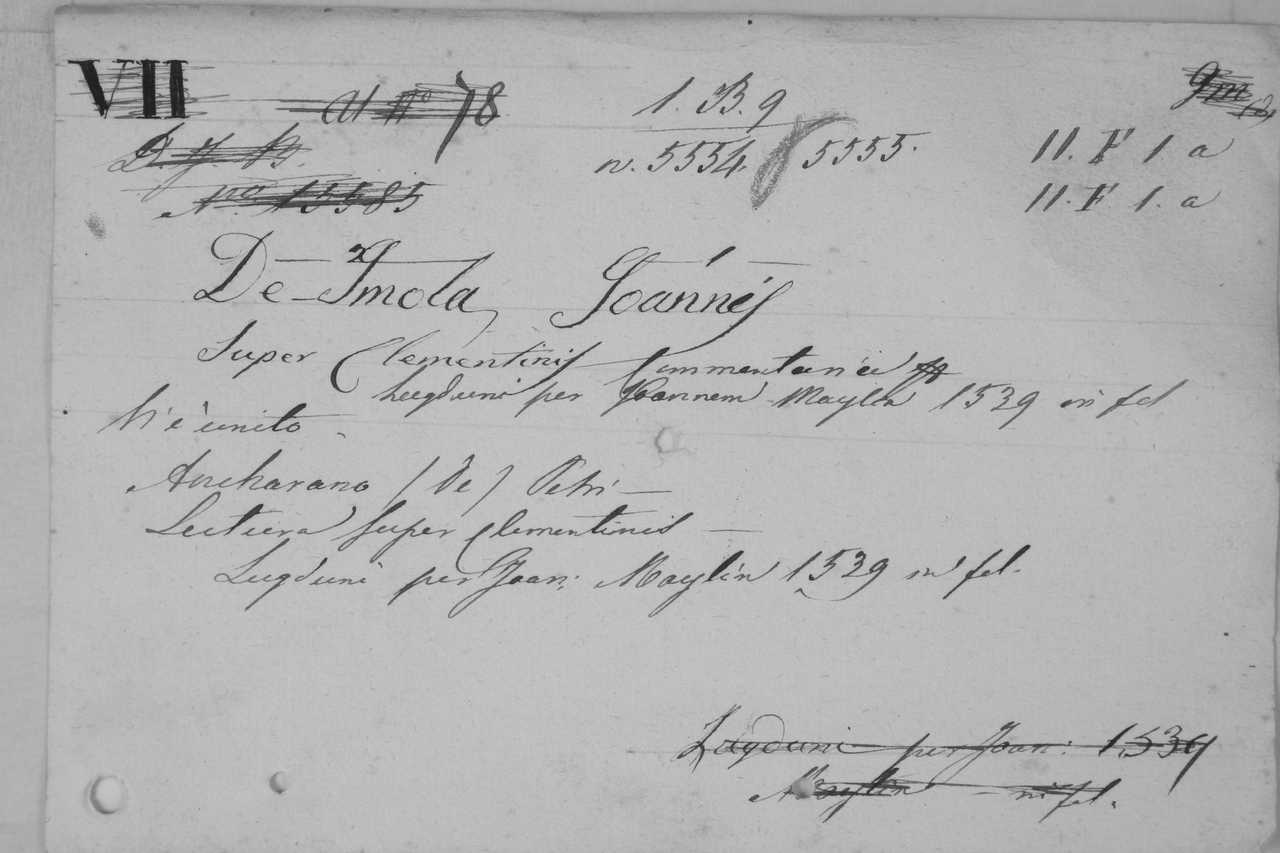 VII
N° 78
1. B. 9
n. 5554. 5555.
11. F 1. a
11. F 1. a
N° 13585
De-Imola Joánnés
Super Clementinis Commentaria
Lugduni per Joannem Maylin 1539 in fol
Vi è unito
Ancharano (De) Petri —
Lectura super Clementinis —
Lugduni per Joan: Maylin 1539 in fol.
Lugduni per Joan: 1539
Maylin — in fol.